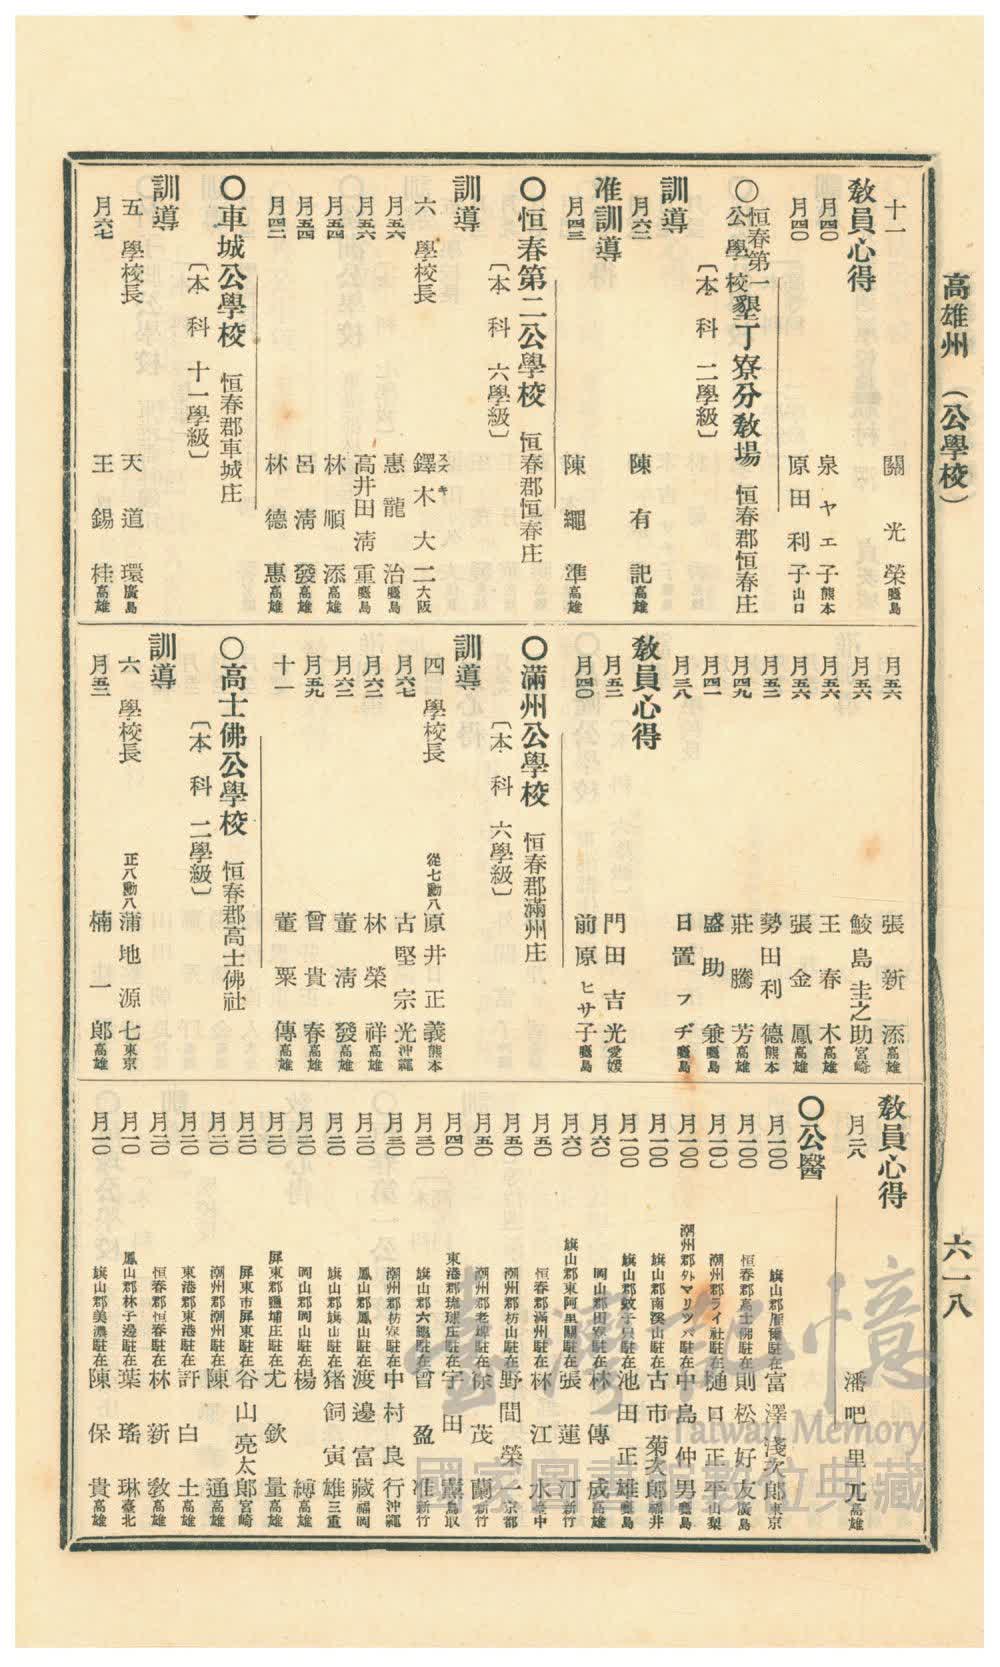 高雄州 （公學校）
六一八
十一 關光榮 鹿兒島
教員心得
月四〇 泉ヤエ子 熊本
月四〇 原田利子 山口
〇恒春第一公學校墾丁寮分教場 恒春郡恒春庄
〔本科 二學級〕
訓導
月六二 陳有記 高雄
准訓導
月四三 陳繩準 高雄
〇恒春第二公學校 恒春郡恒春庄
〔本科 六學級〕
訓導
六 學校長 鐸木大二 大阪
スズキ
月五六 惠龍治 鹿兒島
月五六 高井田淸重 鹿兒島
月五四 林順添 高雄
月五四 呂淸發 高雄
月四二 林德惠 高雄
〇車城公學校 恒春郡車城庄
〔本科 十一學級〕
訓導
五 學校長 天道環 廣島
月六七 王錫桂 高雄
月五六 張新添 高雄
月五六 鮫島圭之助 宮崎
月五六 王春木 高雄
月五六 張金鳳 高雄
月五二 勢田利德 熊本
月四九 莊騰芳 高雄
月四一 盛助兼 鹿兒島
月三八 日置フヂ 鹿兒島
教員心得
月五二 門田吉光 愛媛
月四〇 前原ヒサ子 鹿兒島
〇滿州公學校 恒春郡滿州庄
〔本科 六學級〕
訓導
四 學校長 從七勳八 原井口正義 熊本
月六七 古堅宗光 沖繩
月六二 林榮祥 高雄
月六二 董淸發 高雄
月五九 曾貴春 高雄
十一 董栗傳 高雄
〇高士佛公學校 恒春郡高士佛社
〔本科 二學級〕
訓導
六 學校長 正八勳八 蒲地源七 東京
月五二 楠一郎 高雄
教員心得
月二八 潘吧里兀 高雄
〇公醫
月一〇〇 旗山郡雁爾駐在 富澤淺次郎 東京
月一〇〇 恒春郡高士佛駐在 則松好友 廣島
月一〇〇 潮州郡ライ社駐在 樋口正平 山梨
月一〇〇 潮州郡外マリツパ駐在 中島仲男 鹿兒島
月一〇〇 旗山郡南溪山駐在 古市菊次郎 福井
月一〇〇 旗山郡蚊子只駐在 池田正雄 鹿兒島
月六〇 岡山郡田寮駐在 林傳成 高雄
月六〇 旗山郡東阿里關駐在 張蓮汀 新竹
月五〇 恒春郡滿州駐在 林江水 臺中
月五〇 潮州郡枋山駐在 野間榮一 京都
月五〇 潮州郡老埤駐在 徐茂蘭 新竹
月四〇 東港郡琉球庄駐在 宇田薰 鳥取
月三〇 旗山郡六龜駐在 曾盈准 新竹
月三〇 潮州郡枋寮駐在 中村良行 沖繩
月二〇 鳳山郡鳳山駐在 渡邊富藏 福岡
月二〇 旗山郡旗山駐在 猪飼寅雄 三重
月二〇 岡山郡岡山駐在 楊縛 高雄
月二〇 屏東郡鹽埔庄駐在 尤欽量 高雄
月二〇 屏東市屏東駐在 谷山亮太郎 宮崎
月二〇 潮州郡潮州駐在 陳通 高雄
月二〇 東港郡東港駐在 許白土 高雄
月二〇 恒春郡恒春駐在 林新敎 高雄
月一〇 鳳山郡林子邊駐在 葉瑤琳 臺北
月一〇 旗山郡美濃駐在 陳保貴 高雄
臺灣記憶
Taiwan Memory
國家圖書館數位典藏